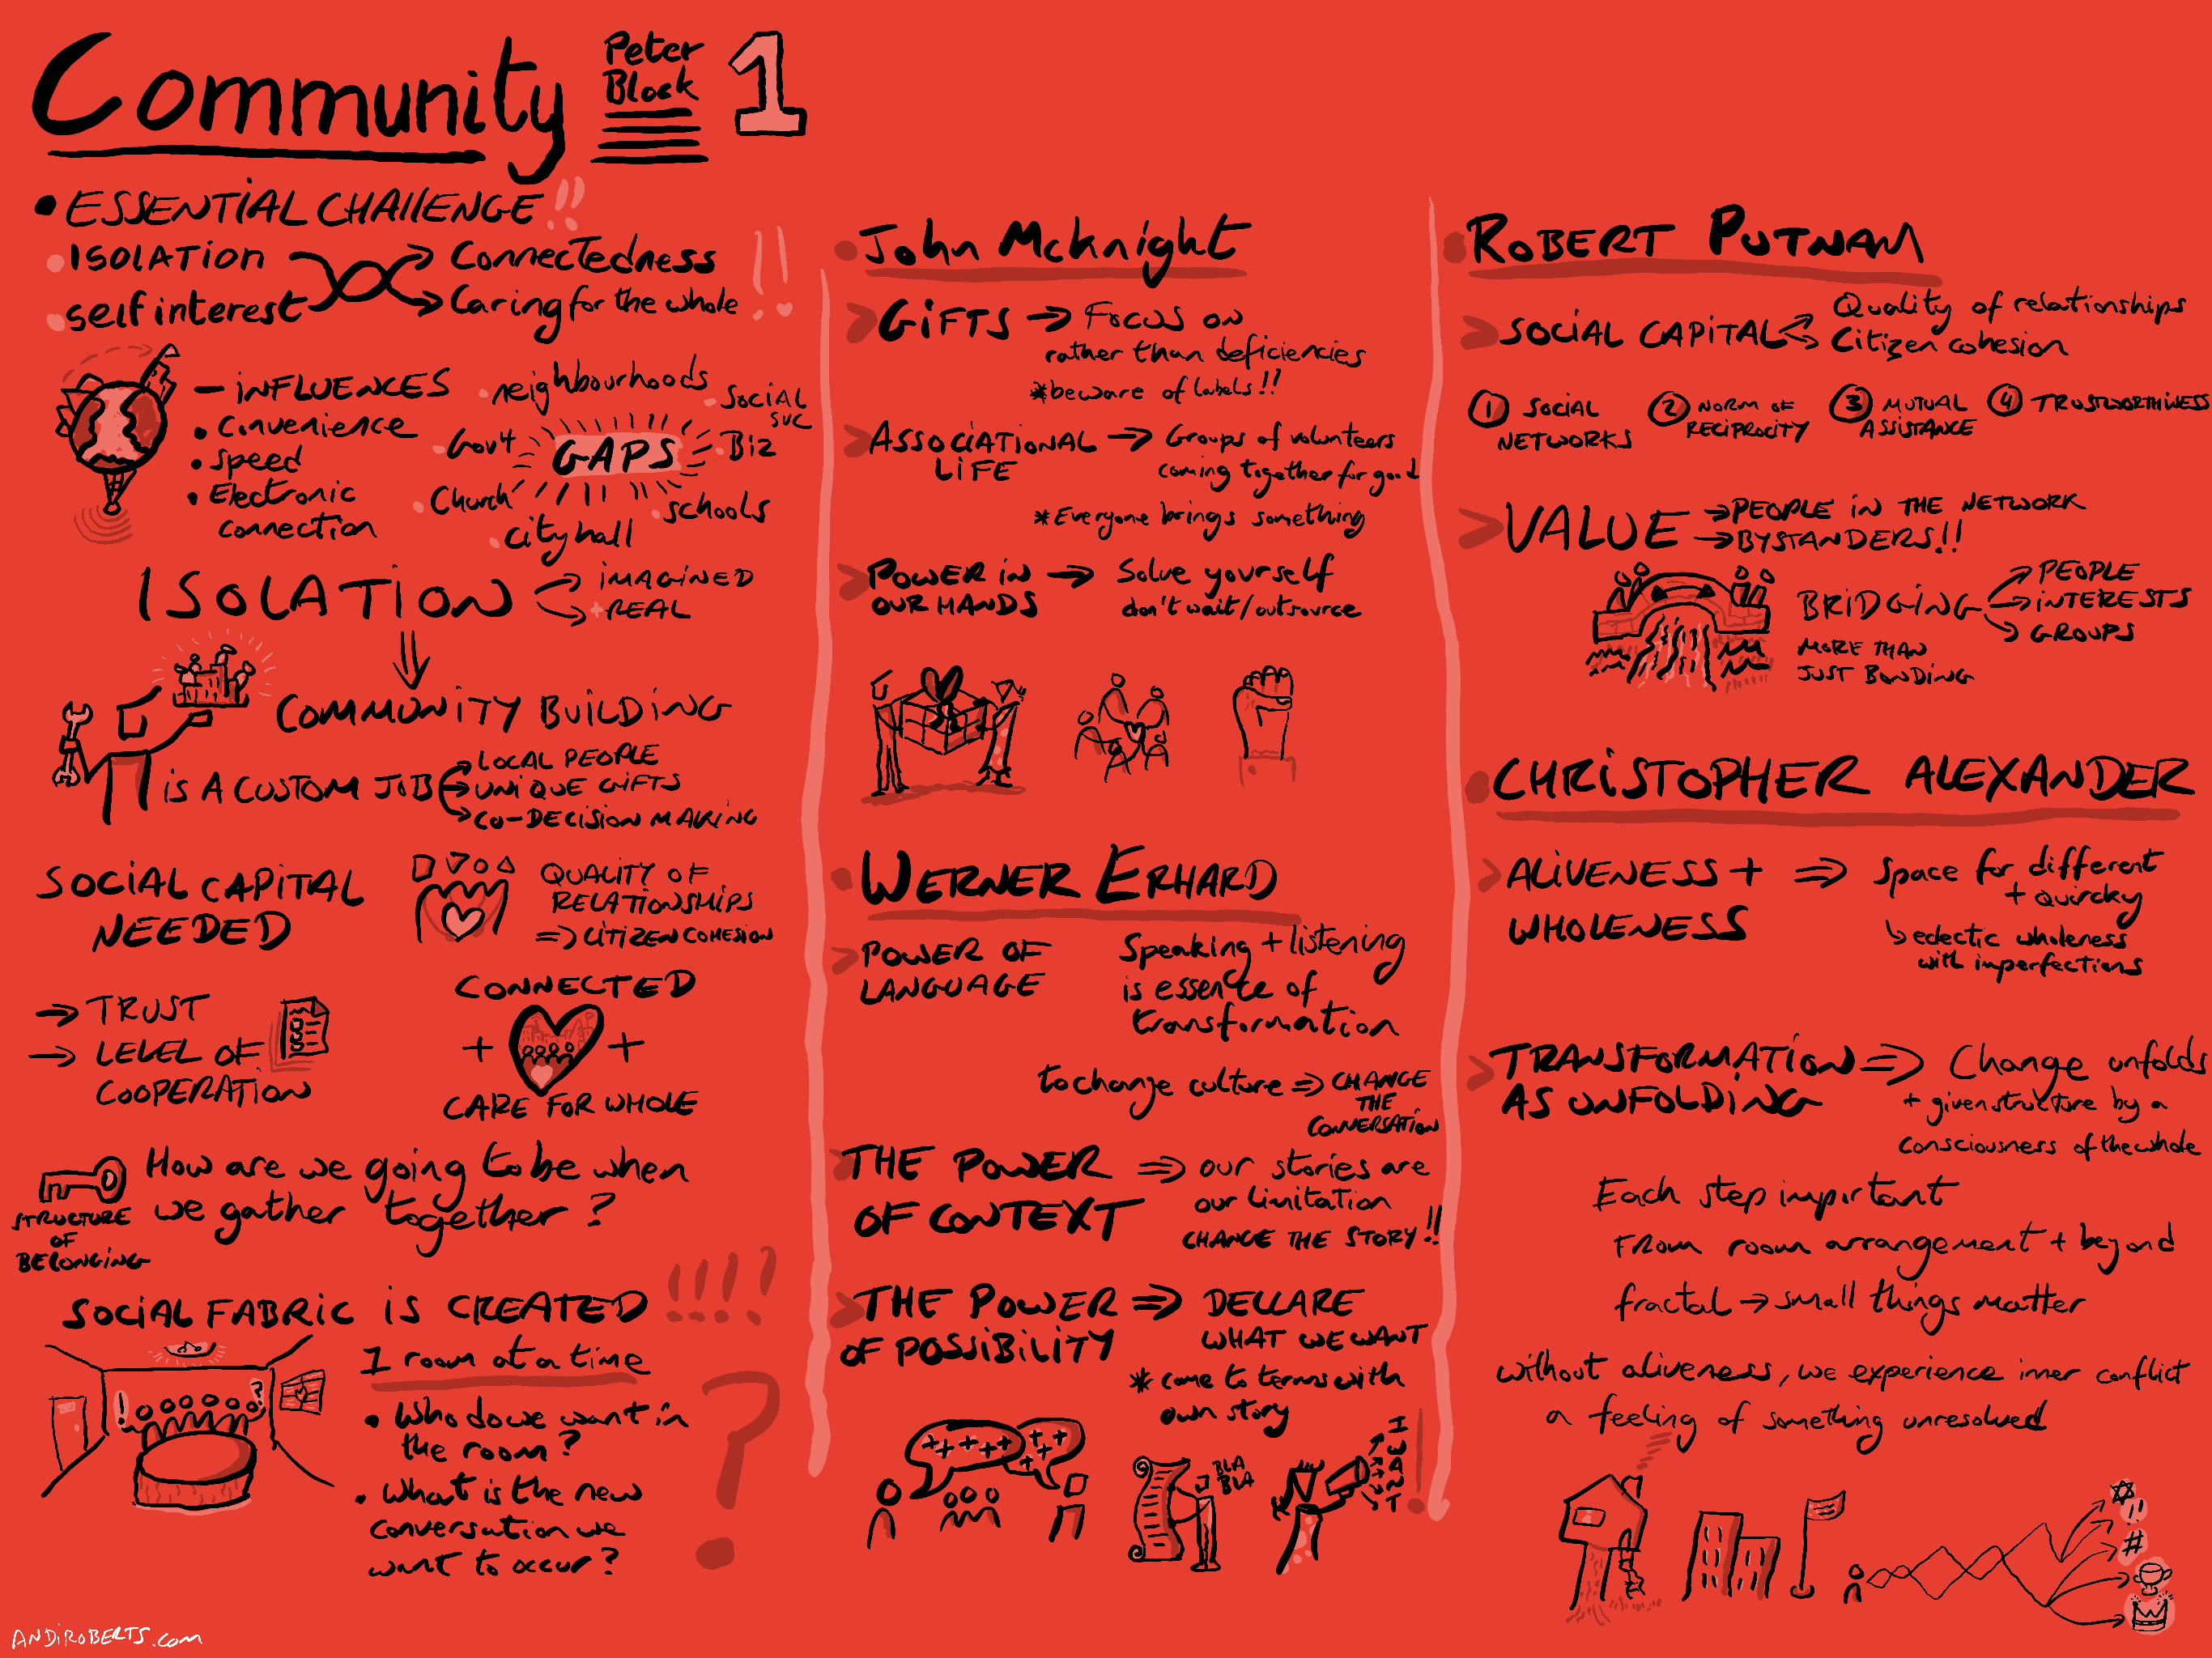 Community
Peter
Block
1
• ESSENTIAL CHAllENGE !!
• ISOLATION
Connectedness
• self interest
Caring for the whole
!!
– INFLUENCES
• Convenience
• Speed
• Electronic
connection
neighbourhoods
Social
svc
Gov4
GAPS
Biz
Church
schools
city hall
ISOLATION
IMAGINED
REAL
COMMUNITY BUILDING
is A CUSTOM JOB
LOCAL PEOPLE
UNIQUE GIFTS
CO-DECISION MAKING
SOCIAL CAPITAL
NEEDED
QUALITY OF
RELATIONSHIPS
=> CITIZEN COHESION
→ TRUST
→ LEVEL OF
COOPERATION
CONNECTED
+ +
CARE FOR WHOLE
How are we going to be when
we gather together?
STRUCTURE
OF
BELONGING
SOCIAL FABRIC is CREATED !!!!
1 room at a time
• Who do we want in
the room?
• What is the new
conversation we
want to occur?
?
! ?
ANDiROBERTS.com
• John McKnight
> GiFTS → Focus on
rather than deficiencies
*beware of labels!!
> ASSOCIATIONAL
LiFE
→ Groups of volunteers
coming together for good
*Everyone brings something
> POWER iN
OUR HANDS
→ Solve yourself
don't wait/outsource
• WERNER ERHARD
> POWER OF
LANGUAGE
Speaking + listening
is essence of
transformation
to change culture => CHANGE
THE
CONVERSATION
> THE POWER
OF CONTEXT
=> our stories are
our limitation
CHANGE THE STORY!!
> THE POWER
OF POSSIBILITY
=> DECLARE
WHAT WE WANT
* come to terms with
own story
BLA
BLA
I WANT
!
• ROBERT PUTNAM
> SOCIAL CAPITAL
Quality of relationships
Citizen cohesion
① SOCIAL
NETWORKS
② NORM OF
RECIPROCITY
③ MUTUAL
ASSISTANCE
④ TRUSTWORTHINESS
> VALUE
→ PEOPLE IN THE NETWORK
→ BYSTANDERS!!
BRiDGiNG
PEOPLE
iNTERESTS
GROUPS
MORE THAN
JUST BONDING
• CHRiSTOPHER ALEXANDER
> ALIVENESS +
WHOLENESS
=> Space for different
+ quircky
↳ eclectic wholeness
with imperfections
> TRANSFORMATION
AS UNFOLDING
=> Change unfolds
+ given structure by a
consciousness of the whole
Each step important
From room arrangement + beyond
fractal → small things matter
without aliveness, we experience inner conflict
a feeling of something unresolved
!!
#